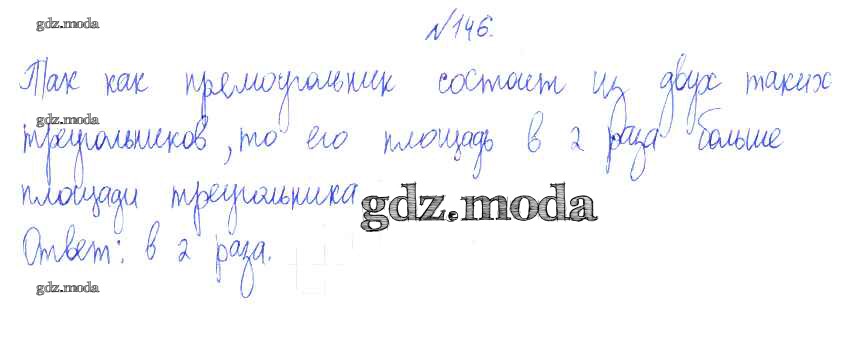 gdz.moda
№146.
Так как прямоугольник состоит из двух таких
gdz.moda
треугольников, то его площадь в 2 раза больше
площади треугольника
gdz.moda
Ответ: в 2 раза.
gdz.moda